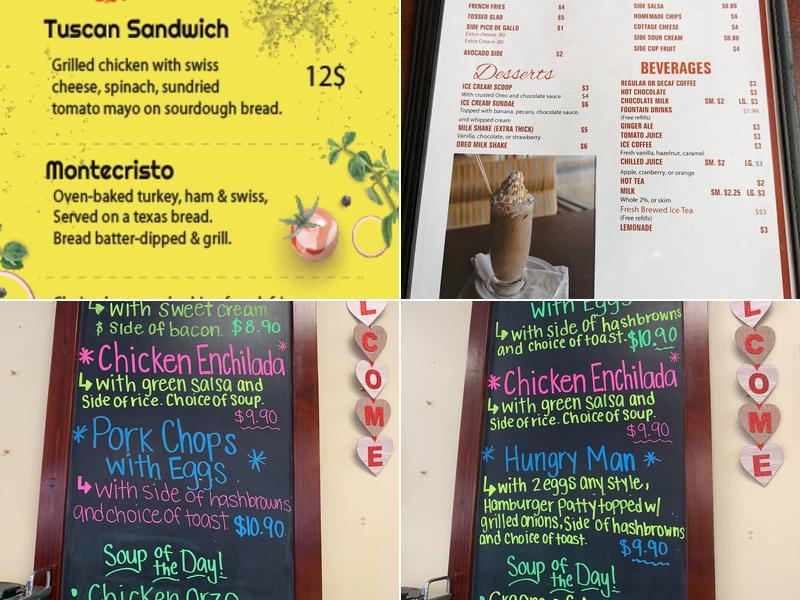 Tuscan Sandwich
Grilled chicken with swiss
cheese, spinach, sundried
tomato mayo on sourdough bread.
12$
Montecristo
Oven-baked turkey, ham & swiss,
Served on a texas bread.
Bread batter-dipped & grill.
FRENCH FRIES $4
TOSSED SLAD $5
SIDE PICO DE GALLO $1
Extra cheese .80
Extra Cream .80
AVOCADO SIDE $2
SIDE SALSA $0.80
HOMEMADE CHIPS $4
COTTAGE CHEESE $4
SIDE SOUR CREAM $0.80
SIDE CUP FRUIT $4
Desserts
ICE CREAM SCOOP $3
With crusted Oreo and chocolate sauce $4
ICE CREAM SUNDAE $6
Topped with banana, pecans, chocolate sauce,
and whipped cream
MILK SHAKE (EXTRA THICK) $5
Vanilla, chocolate, or strawberry
OREO MILK SHAKE $6
BEVERAGES
REGULAR OR DECAF COFFEE $3
HOT CHOCOLATE $3
CHOCOLATE MILK SM. $2 LG. $3
FOUNTAIN DRINKS $1.99
(Free refills)
GINGER ALE $3
TOMATO JUICE $3
ICE COFFEE $3
Fresh vanilla, hazelnut, caramel
CHILLED JUICE SM. $2 LG. $3
Apple, cranberry, or orange
HOT TEA $2
MILK SM. $2.25 LG. $3
Whole 2%, or skim
Fresh Brewed Ice Tea $$3
(Free refills)
LEMONADE $3
↳ with sweet cream
& side of bacon. $8.90
*Chicken Enchilada*
↳ with green salsa and
Side of rice. Choice of soup.
$9.90
*Pork Chops
with Eggs *
↳ with side of hashbrowns
and choice of toast $10.90
Soup of the Day!
• Chicken Orzo
L
C
O
M
E
with Eggs
↳ with side of hashbrowns
and choice of toast. $10.90
*Chicken Enchilada*
↳ with green salsa and
Side of rice. Choice of soup.
$9.90
* Hungry Man *
↳ with 2 eggs any style,
Hamburger patty topped w/
grilled onions, Side of hashbrowns
and choice of toast.
$9.90
Soup of the Day!
L
C
O
M
E